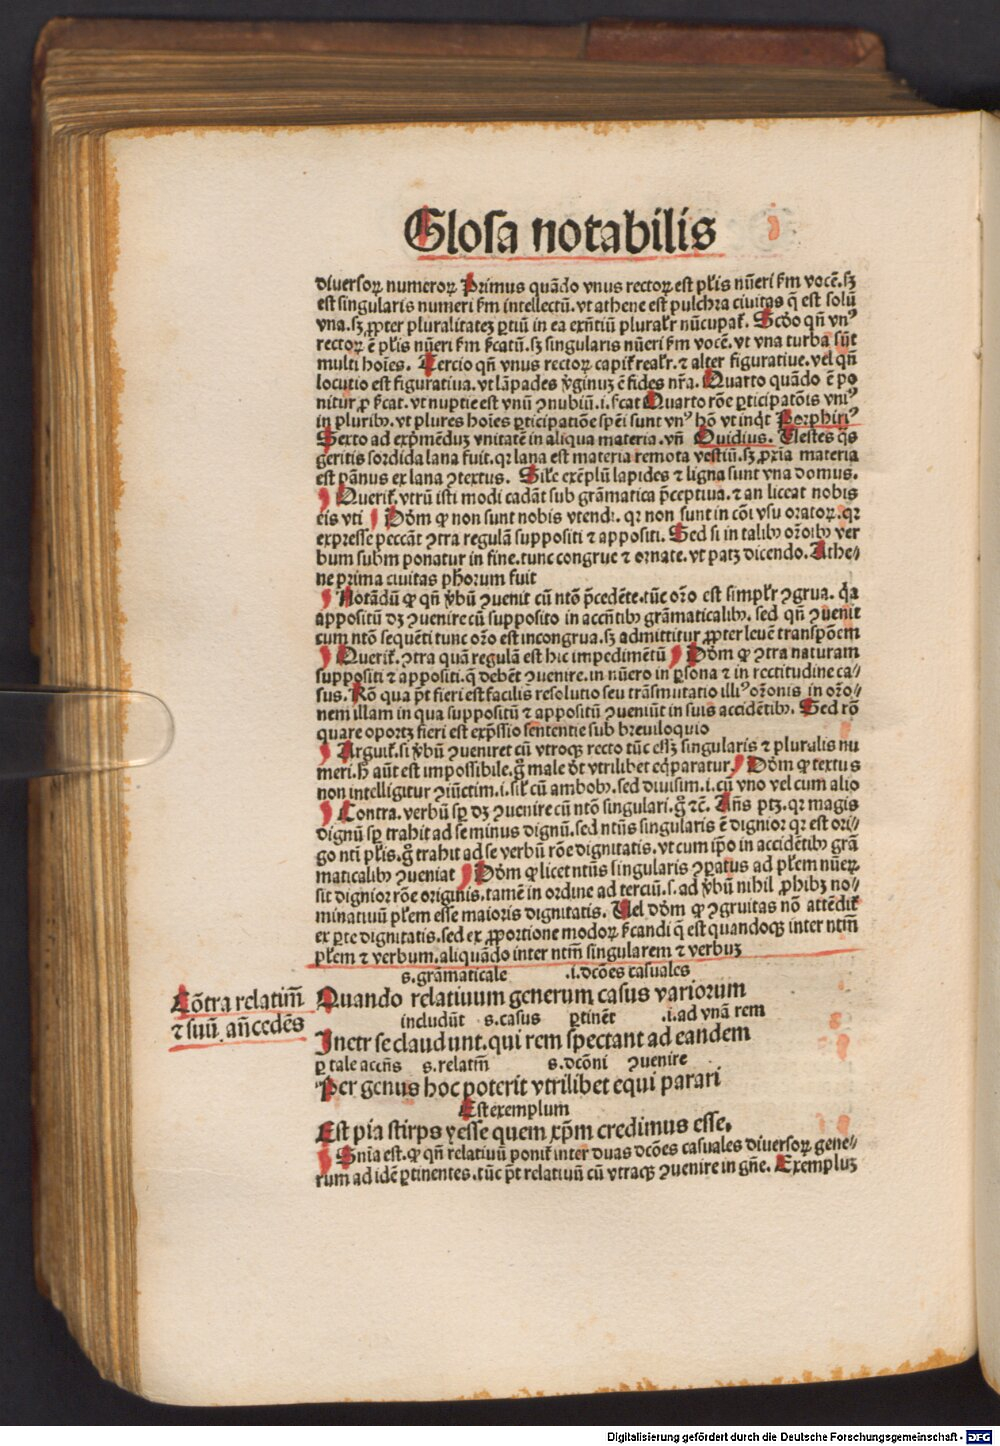 Glosa notabilis
diuersoꝝ numeroꝝ Primus quãdo vnus rectoꝝ est pl̃is nũeri ẜm vocẽ. sꝫ
est singularis numeri ẜm intellectũ. vt athene est pulchra ciuitas q̃ est solũ
vna. sꝫ ꝓpter pluralitateꝫ ꝑtiũ in ea exñtiũ plural'r nũcupat᷑. Scðo qñ vnꝰ
rectoꝝ ẽ pl̃is nũeri ẜm ẜcatũ. sꝫ singularis nũeri ẜm vocẽ. vt vna turba sũt
multi hoĩes. Tercio qñ vnus rectoꝝ capit᷑ real'r. ⁊ alter figuratiue. vel qñ
locutio est figuratiua. vt lãpades v̓ginuꝫ ẽ fides nr̃a. Quarto quãdo ẽ po
nitur ꝓ ẜcat. vt nuptie est vnũ ꝯnubiũ .i. ẜcat Quarto rõe ꝑticipatõis vniꝰ
in pluribꝰ. vt plures hoĩes ꝑticipatiõe spẽi sunt vnꝰ hõ vt inq̃t Porphiriꝰ
Sexto ad exp̃mẽduꝫ vnitatẽ in aliqua materia. vñ Ouidius. Uestes q̃s
geritis sordida lana fuit. qꝛ lana est materia remota vestiũ. sꝫ ꝓxĩa materia
est pãnus ex lana ꝯtextus. Sil'e exẽplũ lapides ⁊ ligna sunt vna domus.
Querit᷑. vtrũ isti modi cadãt sub grãmatica p̃ceptiua. ⁊ an liceat nobis
eis vti Dõm ꝙ non sunt nobis vtendi. qꝛ non sunt in cõi vsu oratoꝝ. qꝛ
expresse peccãt ꝯtra regulã suppositi ⁊ appositi. Sed si in talibꝰ oꝛõibꝰ ver
bum subm̃ ponatur in fine. tunc congrue ⁊ oꝛnate. vt patꝫ dicendo. Athe⸗
ne prima ciuitas ph̃oꝛum fuit
Notãdũ ꝙ qñ v̓bũ ꝯuenit cũ ntõ p̃cedẽte. tũc oꝛõ est simpl'r ꝯgrua. q̃a
appositũ dꝫ ꝯuenire cũ supposito in accñtibꝰ grãmaticalibꝰ. sed qñ ꝯuenit
cum ntõ sequẽti tunc oꝛõ est incongrua. sꝫ admittitur ꝓpter leuẽ transpõem
Querit᷑. ꝯtra quã regulã est hic impedimẽtũ Dõm ꝙ ꝯtra naturam
suppositi ⁊ appositi. q̃ debẽt ꝯuenire. in nũero in ꝑsona ⁊ in rectitudine ca⸗
sus. Rõ qua p̃t fieri est facilis resolutio seu trãsmutatio illiꝰ oꝛõnis in oꝛõ⸗
nem illam in qua suppositũ ⁊ appositũ ꝯueniũt in suis accidẽtibꝰ. Sed rõ
quare opoꝛtꝫ fieri est exp̃ssio sententie sub breuiloquio
Arguit᷑. si v̓bũ ꝯueniret cũ vtroqꝫ recto tũc essꝫ singularis ⁊ pluralis nu
meri. h̃ aũt est impossibile. g̃ male d̃t vtrilibet eq̃paratur. Dõm ꝙ textus
non intelligitur ꝯiũctim. i. sil' cũ ambobꝰ. sed diuisim. i. cũ vno vel cum alio
Contra. verbũ sp̃ dꝫ ꝯuenire cũ ntõ singulari. g̃ ⁊c̃. Añs ptꝫ. qꝛ magis
dignũ sp̃ trahit ad se minus dignũ. sed ntũs singularis ẽ dignior qꝛ est ori⸗
go nti pl̃is. g̃ trahit ad se verbũ rõe dignitatis. vt cum ip̃o in accidẽtibꝰ grã
maticalibꝰ ꝯueniat Dõm ꝙ licet ntũs singularis ꝯꝑatus ad pl̃em nũeꝝ.
sit dignior rõe originis. tamẽ in ordine ad terciũ. s. ad v̓bũ nihil ꝓhibꝫ no⸗
minatiuũ pl̃em esse maioris dignitatis. Uel dõm ꝙ ꝯgruitas nõ attẽdit᷑
ex ꝑte dignitatis. sed ex ꝓpoꝛtione modoꝝ ẜcandi q̃ est quandoqꝫ inter ntm̃
pl̃em ⁊ verbum. aliquãdo inter ntm̃ singularem ⁊ verbuꝫ
s. grãmaticale .i. dcões casuales
Cõtra relatiũ
⁊ suũ añcedẽs
Quando relatiuum generum casus variorum
includũt s. casus ꝑtinẽt .i. ad vnã rem
Inetr se claudunt. qui rem spectant ad eandem
ꝑ tale accñs s. relatm̃ s. dcõni ꝯuenire
Per genus hoc poterit vtrilibet equi parari
Est exemplum
Est pia stirps yesse quem xp̃m credimus esse.
Snĩa est. ꝙ qñ relatiuũ ponit᷑ inter duas dcões casuales diuersoꝝ gene⸗
rum ad idẽ ꝑtinentes. tũc p̃t relatiuũ cũ vtraqꝫ ꝯuenire in gñe. Exempluꝫ
Digitalisierung gefördert durch die Deutsche Forschungsgemeinschaft - DFG